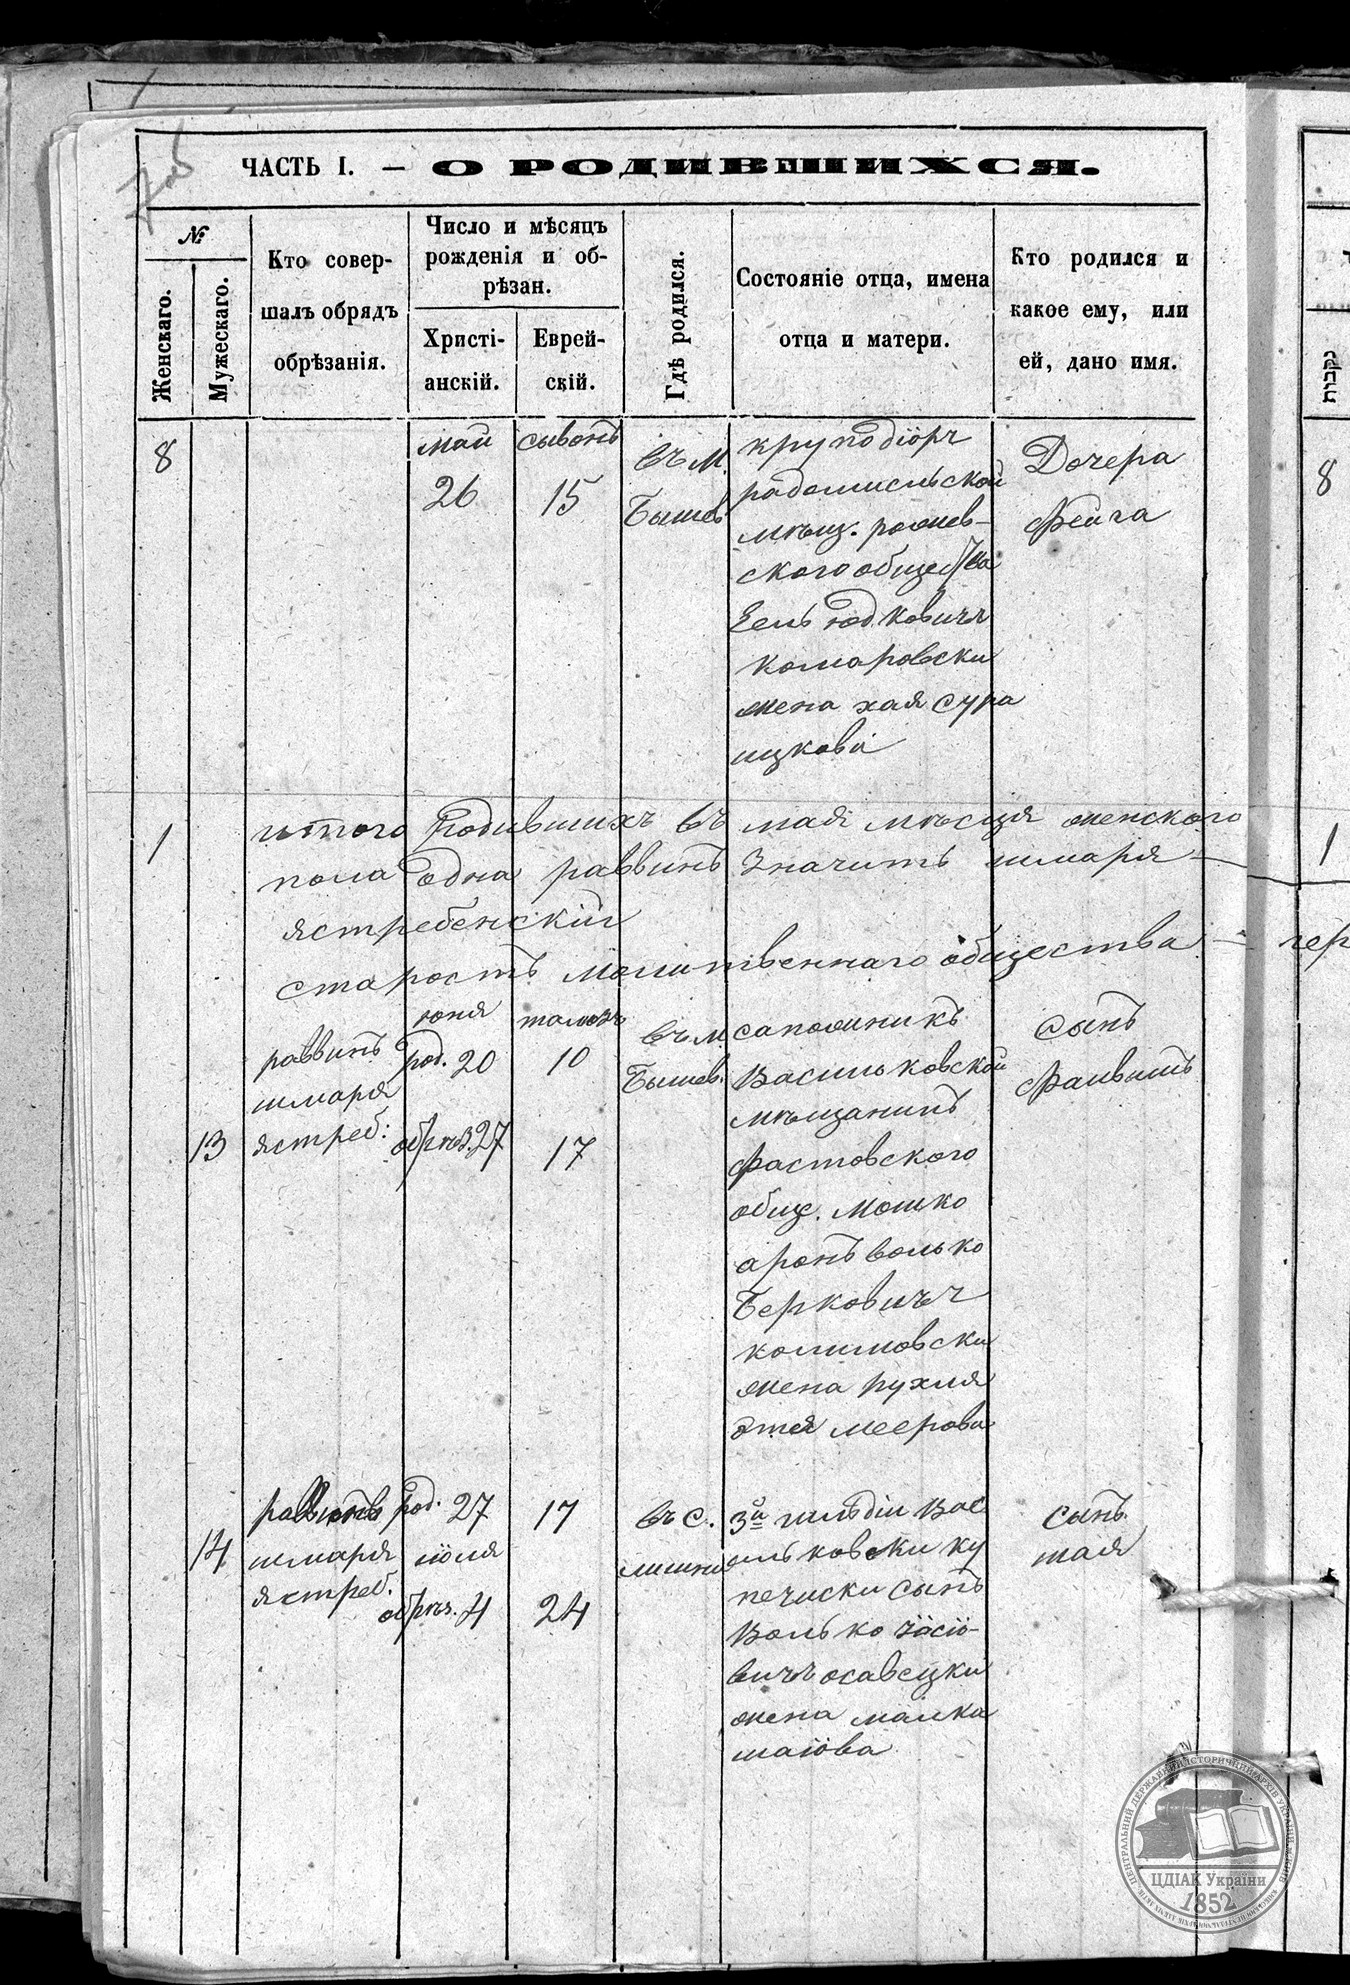 ЧАСТЬ I. — О РОДИВШИХСЯ.
№
Женскаго.
Мужескаго.
Кто совер-
шалъ обрядъ
обрѣзанія.
Число и мѣсяцъ
рожденія и об-
рѣзан.
Христі-
анскій.
Еврей-
скій.
Гдѣ родился.
Состояніе отца, имена
отца и матери.
Кто родился и
какое ему, или
ей, дано имя.
8
май
26
сывонъ
15
въ м.
Бышев
круподіоръ
радомисльской
мѣщ.
ского общества
Гель Юдковичъ
комаровски
жена хая сура
ицкова
Дочера
Фейга
1
итого родившихъ въ мая мѣсяця женского
пола одна раввинъ значитъ шмаря
ястребенскій
старостъ молитвеннаго общества
13
раввинъ
шмаря
ястреб:
юня
род. 20
обрѣз. 27
тамозъ
10
17
въ м.
Бышев.
сапожникъ
Васильковской
мѣщанинъ
фастовского
обще. мошко
аронъ волько
Берковичъ
колиновски
жена рухля
этея меерова
Сынъ
Фаивышъ
14
раввинъ
шмаря
ястреб.
род. 27
іюля
обрѣз. 4
17
24
въ с.
3й гильдіи Вас
ильковски ку
печиски сынъ
Волько Іосіо-
вичъ осавецки
жена малка
шаіова
сынъ
шая
8
1
נקבות
ЦЕНТРАЛЬНИЙ ДЕРЖАВНИЙ ІСТОРИЧНИЙ АРХІВ УКРАЇНИ, М.КИЇВ
ЦДІАК України
1852